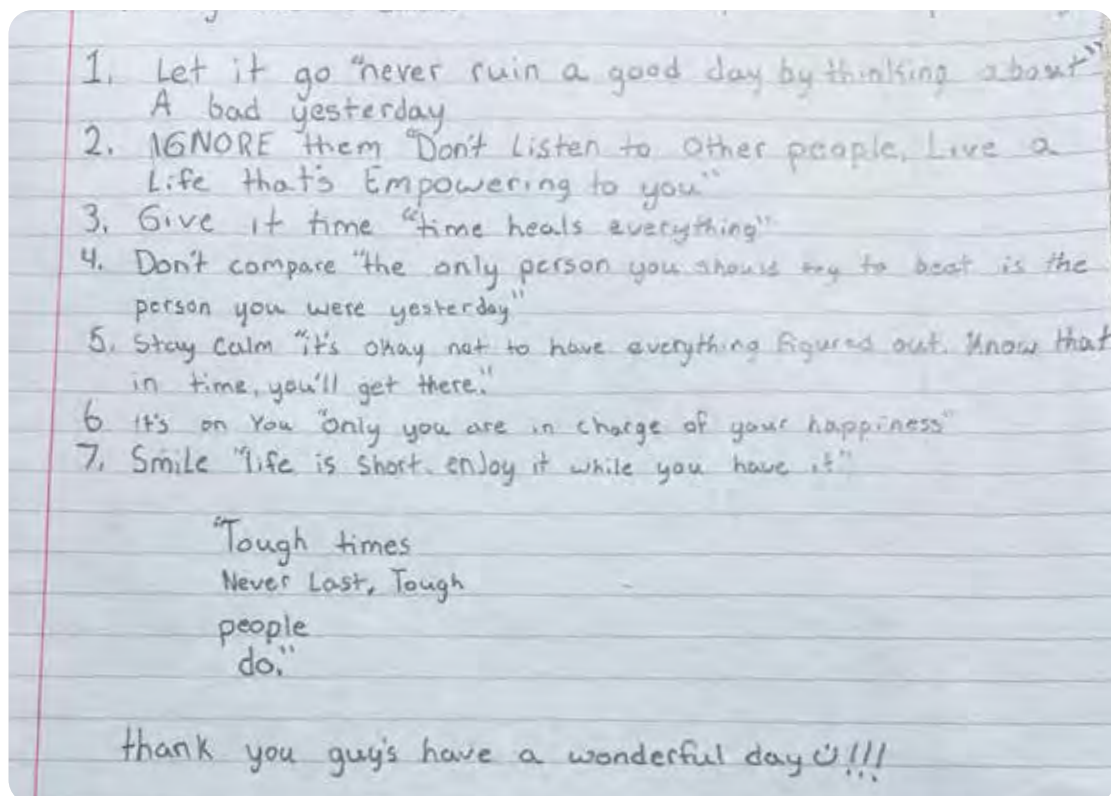 1. Let it go "never ruin a good day by thinking about"
A bad yesterday
2. IGNORE them "Don't Listen to Other people, Live a
Life that's Empowering to you"
3. Give it time "time heals everything"
4. Don't compare "the only person you should try to beat is the
person you were yesterday"
5. Stay Calm "it's okay not to have everything figured out. Know that
in time, you'll get there."
6 It's on You "Only you are in charge of your happiness"
7. Smile "life is short. enjoy it while you have it"
"Tough times
Never Last, Tough
people
do."
thank you guy's have a wonderful day !!!